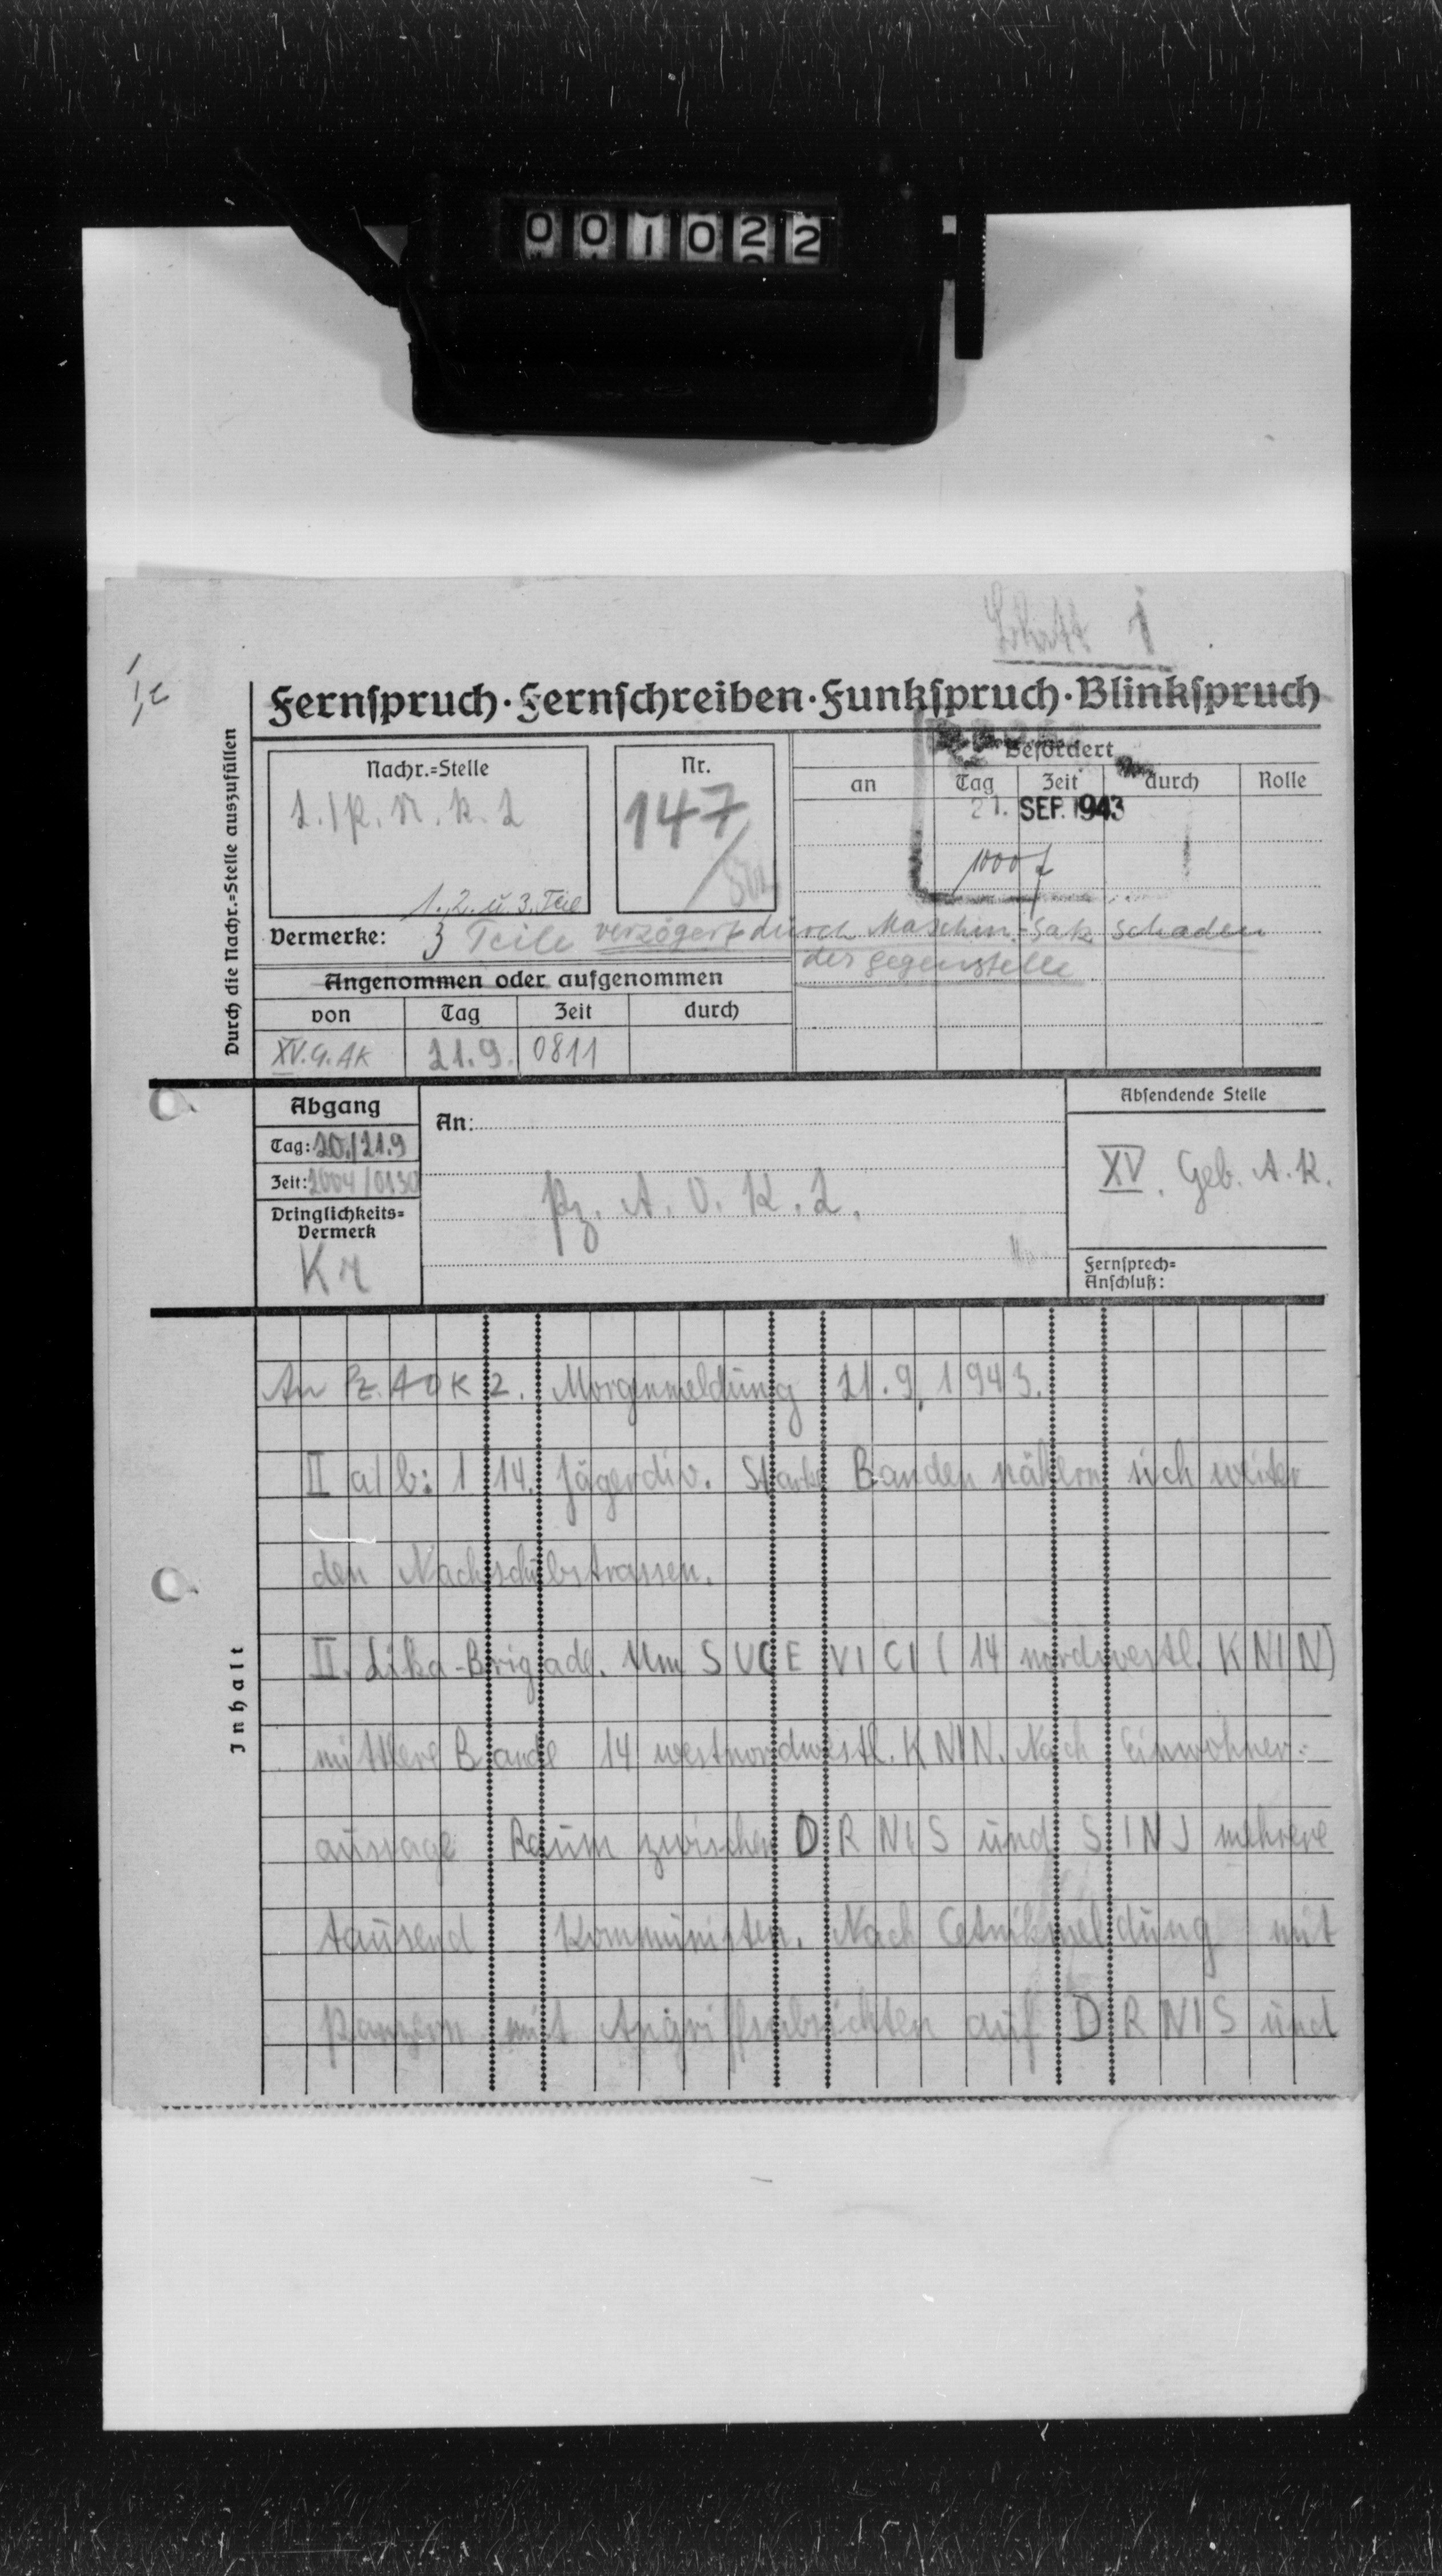 001022
1
Ic
Fernspruch·Fernschreiben·Funkspruch·Blinkspruch
Durch die Nachr.=Stelle auszufüllen
Nachr.=Stelle
Nr.
Befördert
an
Tag
Zeit
durch
Rolle
147
21. SEP. 1943
1000
1. 2. u. 3. Teil
Vermerke: 3 Teile verzögert durch Maschin.-Satz Schaden
der Gegenstelle
Angenommen oder aufgenommen
von
Tag
Zeit
durch
XV.G.AK
21.9.
0811
Abgang
Tag: 20./21.9
Zeit: 2004/0130
Dringlichkeits=
Vermerk
Kr
An:
Pz. A. O. K. 2.
Absendende Stelle
XV. Geb. A. K.
Fernsprech=
Anschluß:
Inhalt
An Pz. AOK 2. Morgenmeldung 21.9.1943.
II a/b: 114. Jägerdiv. Starke Banden nähern sich weiter
den Nachschubstrassen.
II. Lika-Brigade. Um SUCEVICI (14 nordwestl. KNIN)
mittlere Bande 14 westnordwestl. KNIN. Nach Einwohner-
aussage Raum zwischen DRNIS und SINJ mehrere
tausend Kommunisten. Nach Cetnikmeldung mit
Panzern mit Angriffsabsichten auf DRNIS und